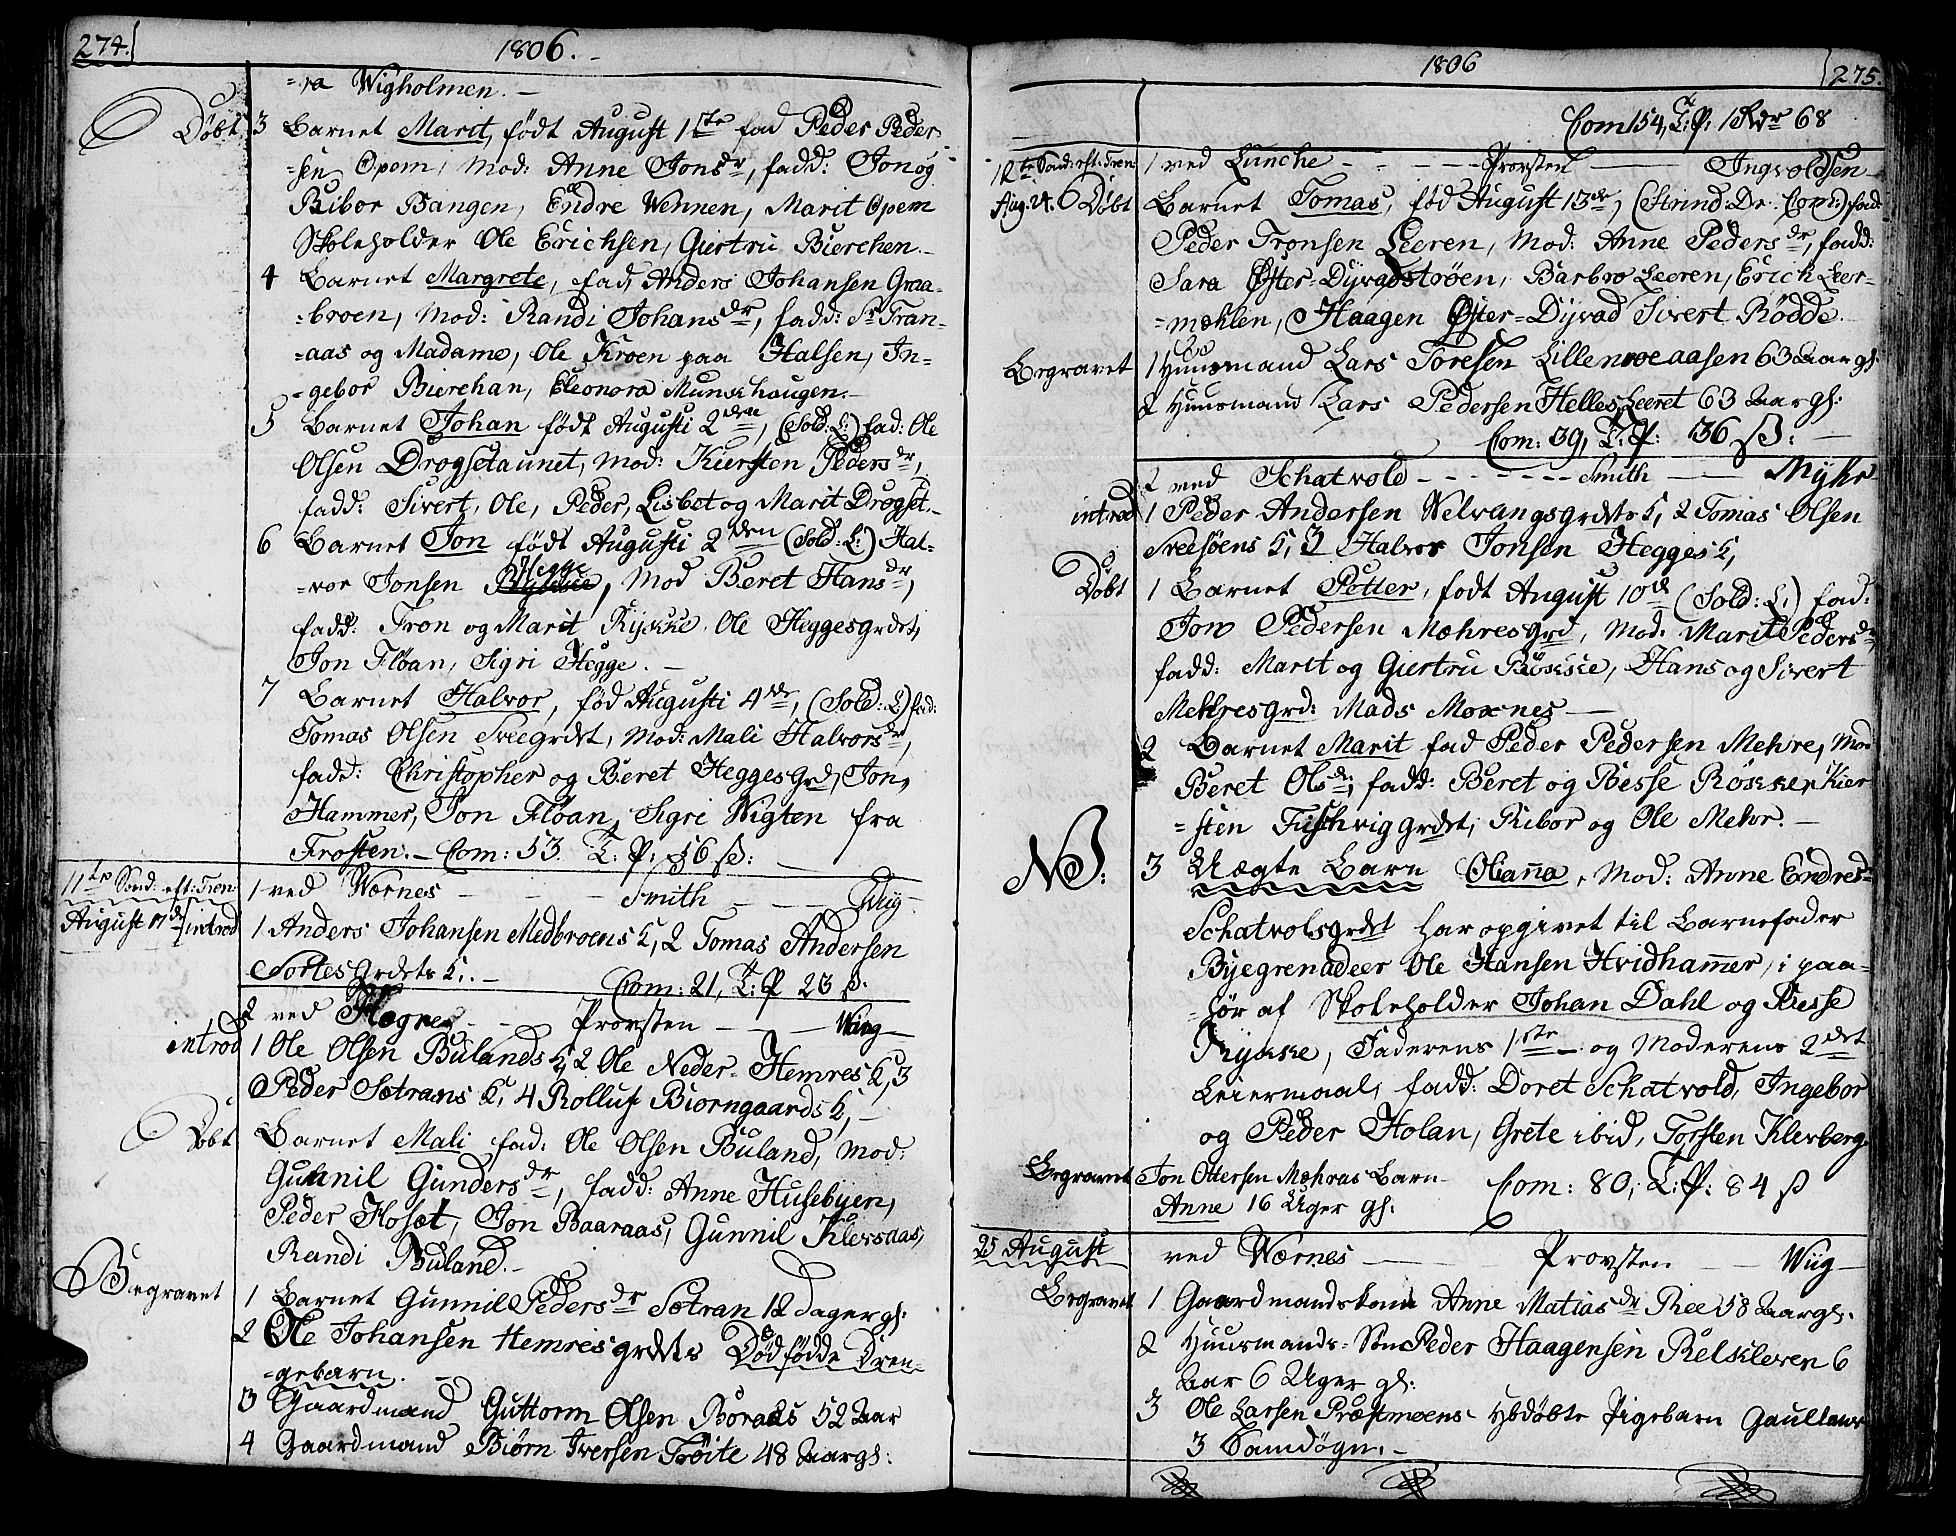 274.
1806.
=ra Wigholmen.
Døbt 3 Barnet Marit, født August 1ste fad Peder Peder=
=sen Opem, Mod: Anne Jonsdr, fadd: Jon og
Ribor Bangen, Endre Wennen, Marit Opem
Skoleholder Ole Erichsen, Giertru Bierchen.
4 Barnet Margrete, fad, Anders Johansen Graa=
=broen, Mod: Randi Johansdr, fadd: Sr Tran=
=aas og Madame, Ole Kroen paa Halsen, In=
=gebor Bierchan, Eleonora Munkhaugen.
5 Barnet Johan født Augusti 2den, (Sold: L:) fad: Ole
Olsen Drogsetaunet, Mod: Kiersten Pedersdr,
fadd: Sivert, Ole, Peder, Lisbet og Marit Drogset.
6 Barnet Jon født Augusti 2den (Sold: L:) Hal=
=vor Jonsen Hegge, Mod Beret Hansdr,
fadd: Tron og Marit Rykke, Ole Heggesgrdet,
Jon Fløan, Sigri Hegge.
7 Barnet Halvor, fød Augusti 4de, (Sold: L) fad:
Tomas Olsen Sveegrdet, Mod: Mali Halvorsdr,
fadd: Christopher og Beret Heggesgrd, Jon
Hammer, Jon Fløan, Sigri Wigten fra
Frosten. Com: 53. T: P: 56 ß:
11te Sønd: eft: Tren: 1 ved Wærnes Smith Wiig
August 17de introd 1 Anders Johansen Medbroens K, 2 Tomas Andersen
Sortesgrdets K. Com: 21, T: P 23 ß.
2 ved Hegre Provsten Wiig
introd 1 Ole Olsen Bulands K, 2 Ole Neder-Hemres K, 3
Peder Sætrans K, 4 Rolluf Biorngaards K,
Døbt Barnet Mali fad: Ole Olsen Buland, Mod:
Gunnil Gundersdr, fadd: Anne Husebyen,
Peder Hoset, Jon Baaraas, Gunnil Klevsaas,
Randi Buland.
Begravet 1 Barnet Gunnil Pedersdr Sætran 12 dager gl:
2 Ole Johansen Hemresgrdets Dødfødde Dren=
=gebarn.
3 Gaardmand Guttorm Olsen Boraas 52 Aar
4 Gaardmand Biørn Iversen Trøite 48 Aar gl:
1806
275.
Com 154, T: P: 1 Rdr 68
12te Sønd: eft: Tren: 1 ved Luncke Provsten Ingvoldsen
Aug. 24. Døbt Barnet Tomas, fød August 13de, (Strind: Dr. Com:) fad:
Peder Tronsen Leeren, Mod: Anne Pedersdr, fadd:
Sara Øfter-Dyvadstrøen, Barbro Leeren, Erick Leer=
=mehlen, Haagen Øfter=Dyvad Sivert Rødde.
Begravet 1 Huusmand Lars Toresen Lillemoeaasen 63 Aar gl:
2 Huusmand Lars Pedersen Helles Leeret 63 Aar gl:
Com: 39, T: P: 36 ß:
2 ved Schatvold Smith Myhr
introd 1 Peder Andersen Welvangsgrdets K, 2 Tomas Olsen
Sveesøens K, 3 Halvor Jonsen Hegges K,
Døbt 1 Barnet Petter, født August 10de (Sold: L:) fad:
Jon Pedersen Mæhresgrd, Mod: Marit Pedersdr
fadd: Marit og Giertru Røkke, Hans og Sivert
Mehresgrd: Mads Moxnes
2 Barnet Marit fad Peder Pedersen Mehre, Mod
Beret Olsdr, fadd: Beret og Besse Røkke, Kier
=sten Fischviggrdet, Ribor og Ole Mehr.
NB: 3 Uægte Barn Olianna, Mod: Anne Endresdr
Schatvolsgrdet har opgivet til Barnefader
Byegrenadeer Ole Hansen Hvidhammer, i paa=
=hør af Skoleholder Johan Dahl og Besse
Rykke, Faderens 1ste og Moderens 2det
Leiermaal, fadd: Doret Schatvold, Ingebor
og Peder Holan, Grete ibid, Torsten Klevberg.
Begravet Jon Ottersen Mæhres Barn Com: 80, T: P: 84 ß
Anne 16 Uger gl:
25 August ved Wærnes Provsten Wiig
Begravet 1 Gaardmandskone Anne Matiasdr Ree 58 Aar gl:
2 Huusmands-Søn Peder Haagensen Relskleven 6
Aar 6 Uger gl:
3 Ole Larsen Præstmoens Hjdøbte Pigebarn
3 Samdøgn.